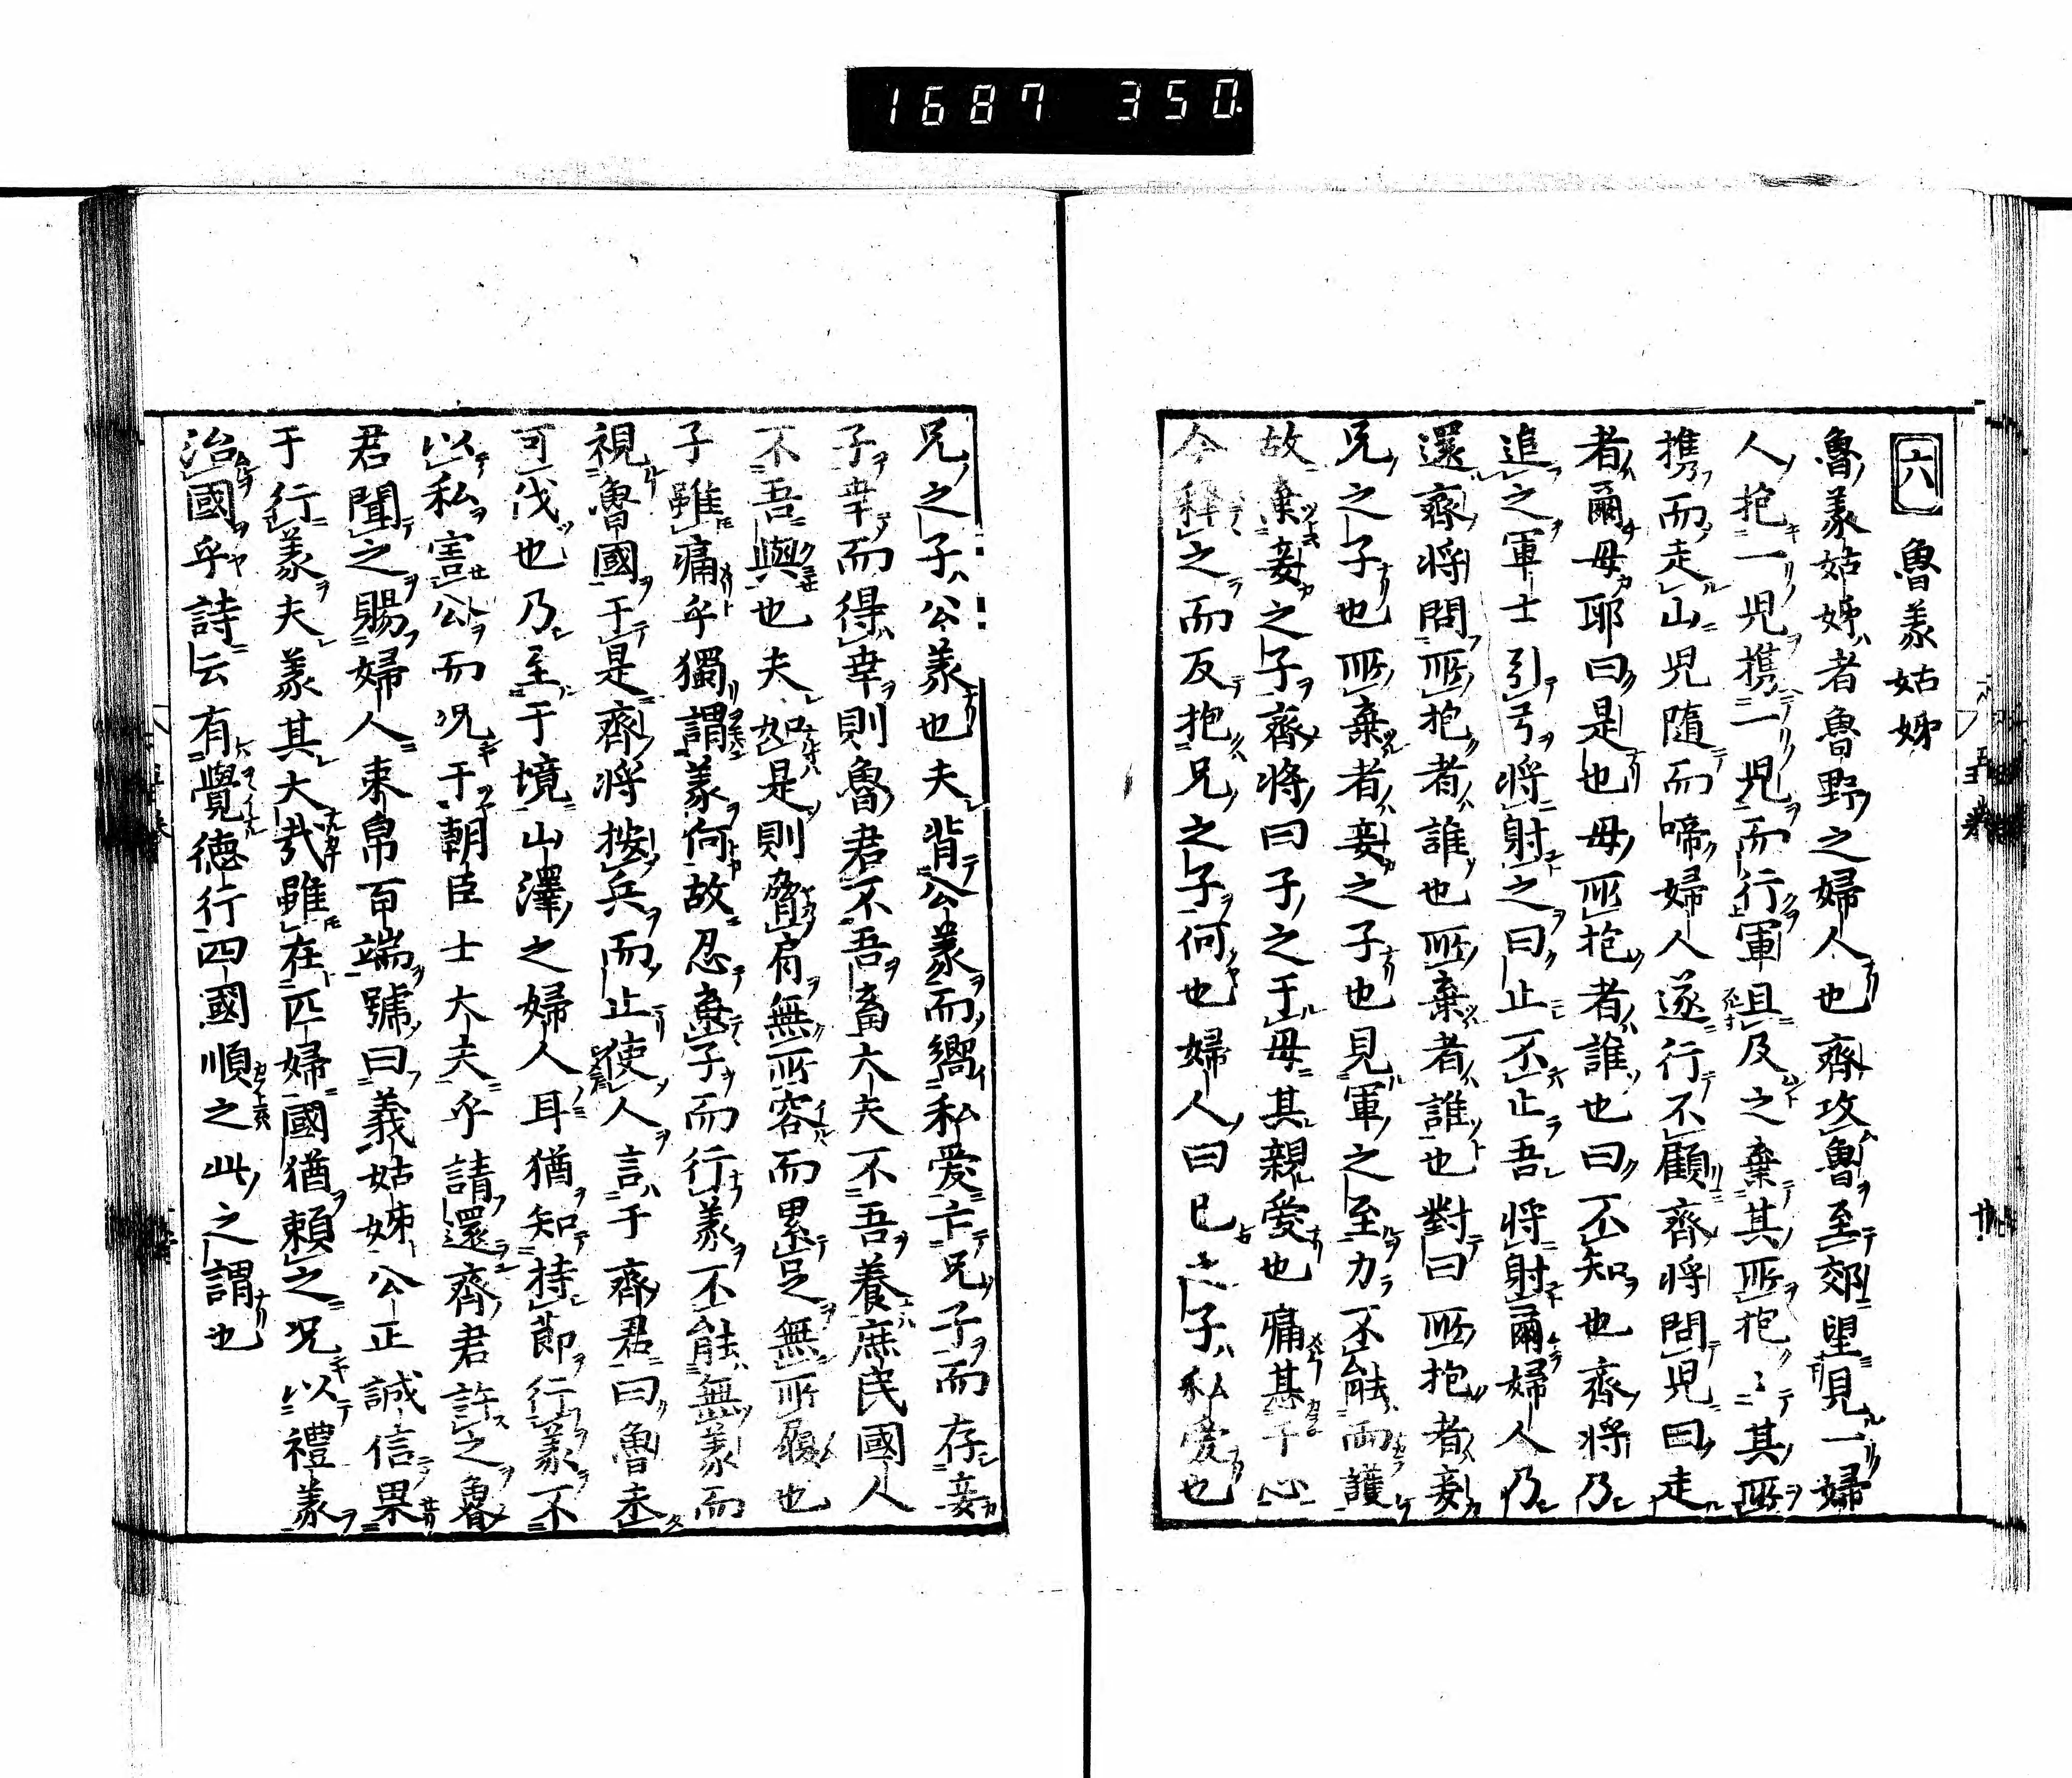 1687 350
六 魯義姑姊
魯義姑姊者魯野之婦人也齊攻魯至郊望見一婦
人抱一児携一児而行軍且及之棄其所抱〻其所
携而走山児隨而啼婦人遂行不顧齊将問児曰走
者爾母耶曰是也母所抱者誰也曰不知也齊将乃
追之軍士引弓将射之曰止不止吾将射爾婦人乃
還齊将問所抱者誰也所棄者誰也對曰所抱者妾
兄之子也所棄者妾之子也見軍之至力不能両護
故棄妾之子齊将曰子之于母其親愛也痛甚于心
今释之而反抱兄之子何也婦人曰已之子私愛也
兄之子公義也夫背公義而嚮私愛亡兄子而存妾
子幸而得幸則魯君不吾畜大夫不吾養庶民國人
不吾與也夫如是則脅肩無所容而累足無所履也
子雖痛乎獨謂義何故忍棄子而行義不能無義而
視魯國于是齊将按兵而止使人言于齊君曰魯未
可伐也乃至于境山澤之婦人耳猶知持節行義不
以私害公而况于朝臣士大夫乎請還齊君許之魯
君聞之賜婦人束帛百端號曰義姑姊公正誠信果
于行義夫義其大哉雖在匹婦國猶賴之况以禮義
治國乎詩云有覺德行四國順之此之謂也